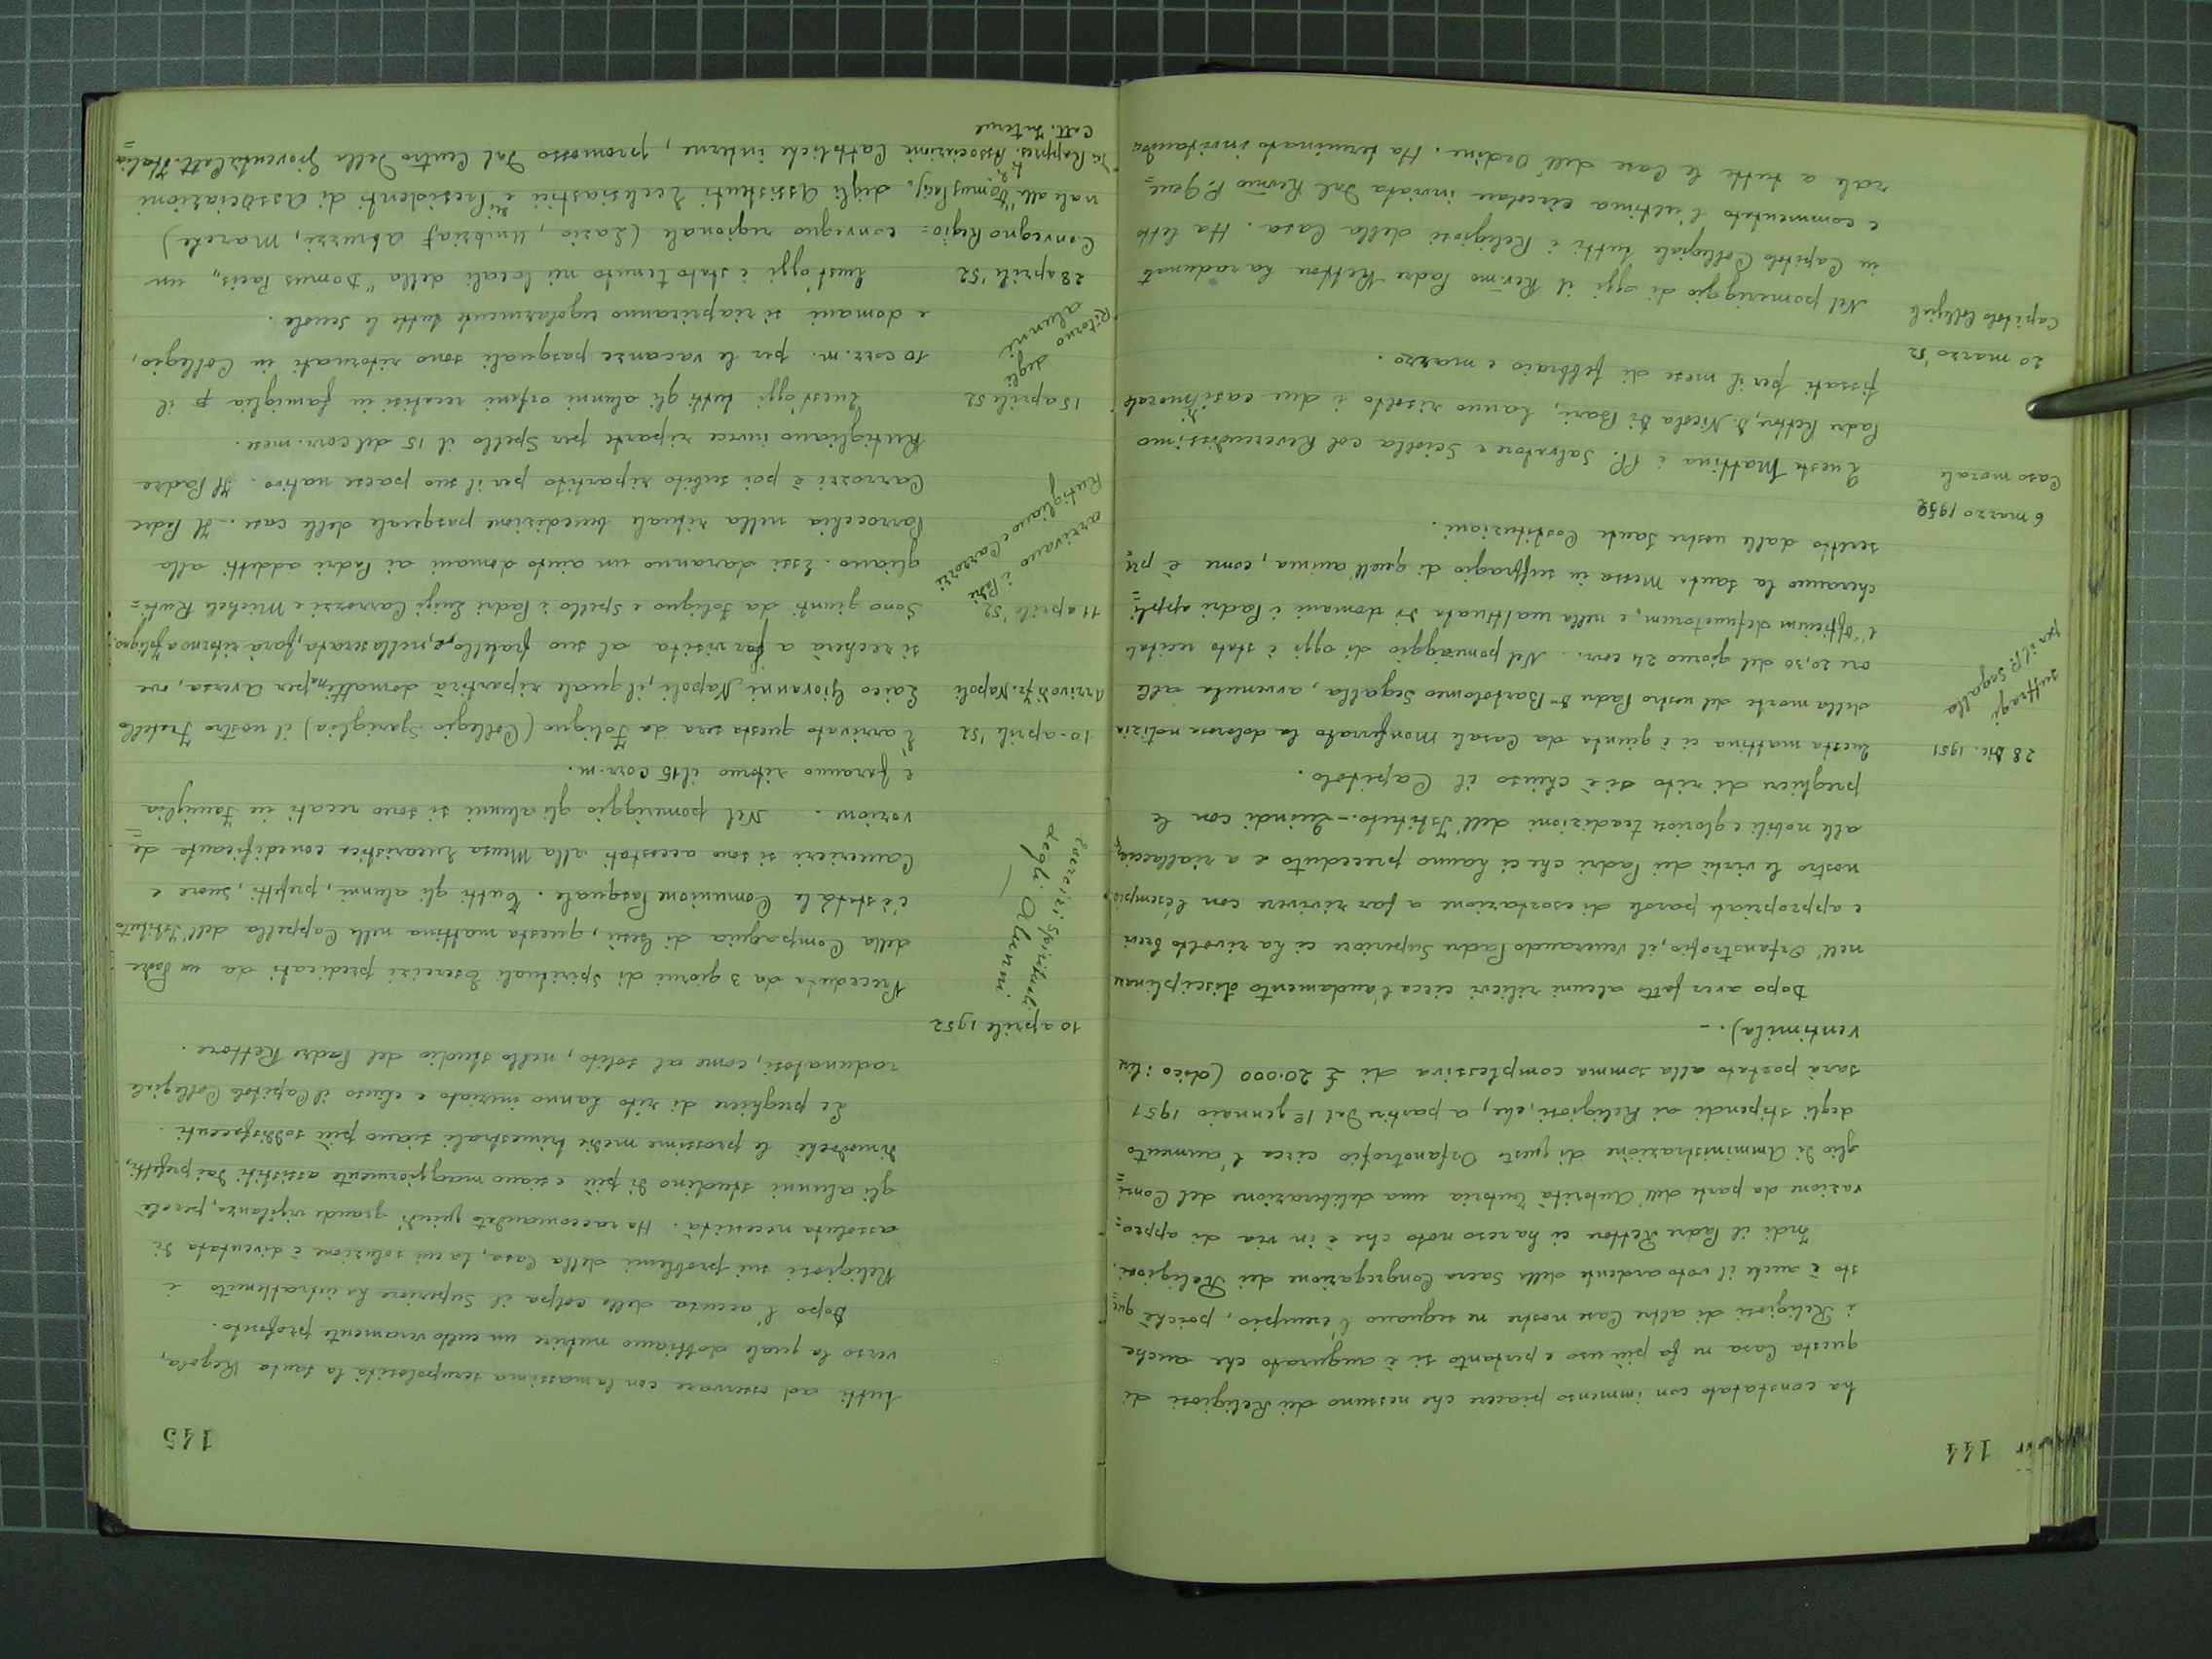 144
ha constatato con immenso piacere che nessuno dei Religiosi di
questa Casa ne fa più uso e pertanto si è augurato che anche
i Religiosi di altre Case nostre ne seguano l'esempio, poichè que=
sto è anche il voto ardente della Sacra Congregazione dei Religiosi.
Indi il Padre Rettore ci ha reso noto che è in via di appro=
vazione da parte dell'Autorità Tutoria una deliberazione del Consi=
glio di Amministrazione di questo Orfanotrofio circa l'aumento
degli stipendi ai Religiosi, che, a partire dal 1º gennaio 1951
sarà portato alla somma complessiva di £ 20.000 (dico: lire
ventimila). -
Dopo aver fatto alcuni rilievi circa l'andamento disciplinare
nell'Orfanotrofio, il venerando Padre Superiore ci ha rivolto brevi
e appropriate parole di esortazione a far rivivere con l'esempio
nostro le virtù dei Padri che ci hanno preceduto e a riallacciarci
alle nobili e gloriose tradizioni dell'Istituto. - Quindi con le
preghiere di rito si è chiuso il Capitolo.
28 Dic. 1951
suffragi
per il P. Segalla
Questa mattina ci è giunta da Casale Monferrato la dolorosa notizia
della morte del nostro Padre Dn Bartolomeo Segalla, avvenuta alle
ore 20,30 del giorno 24 corr. Nel pomeriggio di oggi è stato recitato
l'Officium defunctorum, e nella mattinata di domani i Padri appli=
cheranno la santa Messa in suffragio di quell'anima, come è pre=
scritto dalle nostre Sante Costituzioni.
6 marzo 1952
Caso morale
Questa Mattina i PP. Salvatore e Sciolla col Reverendissimo
Padre Rettore, D. Nicola Di Bari, hanno risolto i due casi di morale
fissati per il mese di febbraio e marzo.
20 marzo '52
Capitolo Collegiale
Nel pomeriggio di oggi il Rev.mo Padre Rettore ha radunato
in Capitolo Collegiale tutti i Religiosi della Casa. Ha letto
e commentato l'ultima circolare inviata dal Rev.mo P. Gene=
rale a tutte le Case dell'Ordine. Ha terminato invitando
145
tutti ad osservare con la massima scrupolosità la santa Regola,
verso la quale dobbiamo nutrire un culto veramente profondo.
Dopo l'accusa della colpa il Superiore ha intrattenuto i
Religiosi sui problemi della Casa, la cui soluzione è diventata di
assoluta necessità. Ha raccomandato quindi grande vigilanza, perchè
gli alunni studino di più e siano maggiormente assistiti dai prefetti,
dimodochè le prossime medie trimestrali siano più soddisfacenti.
Le preghiere di rito hanno iniziato e chiuso il Capitolo Collegiale
radunatosi, come al solito, nello studio del Padre Rettore.
10 aprile 1952
Esercizi Spirituali
degli Alunni
Preceduta da 3 giorni di Spirituali Esercizi predicati da un Padre
della Compagnia di Gesù, questa mattina nella Cappella dell'Istituto
c'è stata la Comunione Pasquale. Tutti gli alunni, prefetti, suore e
Camerieri si sono accostati alla Mensa Eucaristica con edificante de=
vozione. Nel pomeriggio gli alunni si sono recati in famiglia
e faranno ritorno il 15 corr. m.
10-aprile '52
Arrivo di Fr. Napoli
È arrivato questa sera da Foligno (Collegio Sgariglia) il nostro Fratello
Laico Giovanni Napoli, il quale ripartirà domattina per Aversa, ove
si recherà a far visita al suo fratello, e, nella serata, farà ritorno a Foligno.
11 aprile '52
arrivano i Pdri
Rutigliano e Carrozzi
Sono giunti da Foligno e Spello i Padri Luigi Carrozzi e Michele Ruti=
gliano. Essi daranno un aiuto domani ai Padri addetti alla
Parrocchia nella rituale benedizione pasquale delle case. - Il Padre
Carrozzi è poi subito ripartito per il suo paese nativo. Il Padre
Rutigliano invece riparte per Spello il 15 del corr. mese.
15 aprile 52
Ritorno degli
alunni
Quest'oggi tutti gli alunni orfani recatisi in famiglia il
10 corr. m. per le vacanze pasquali sono ritornati in Collegio,
e domani si riapriranno regolarmente tutte le Scuole.
28 aprile '52
Convegno Regio=
nale alla "Domus Pacis"
di Rappres.
Catt. Interne
Quest'oggi è stato tenuto nei locali della "Domus Pacis" un
convegno regionale (Lazio, Umbria, Abruzzi, Marche)
degli Assistenti Ecclesiastici e dei Presidenti di Associazioni
Associazioni Cattoliche interne, promosso dal Centro della Gioventù Catt. Italia=